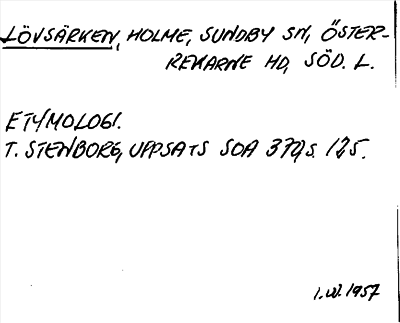 LÖVSÄRKEN, HOLME, SUNDBY SN, ÖSTER-
REKARNE HD, SÖD. L.
ETYMOLOGI.
T. STENBORG, UPPSATS SOA 370, S. 125.
1957